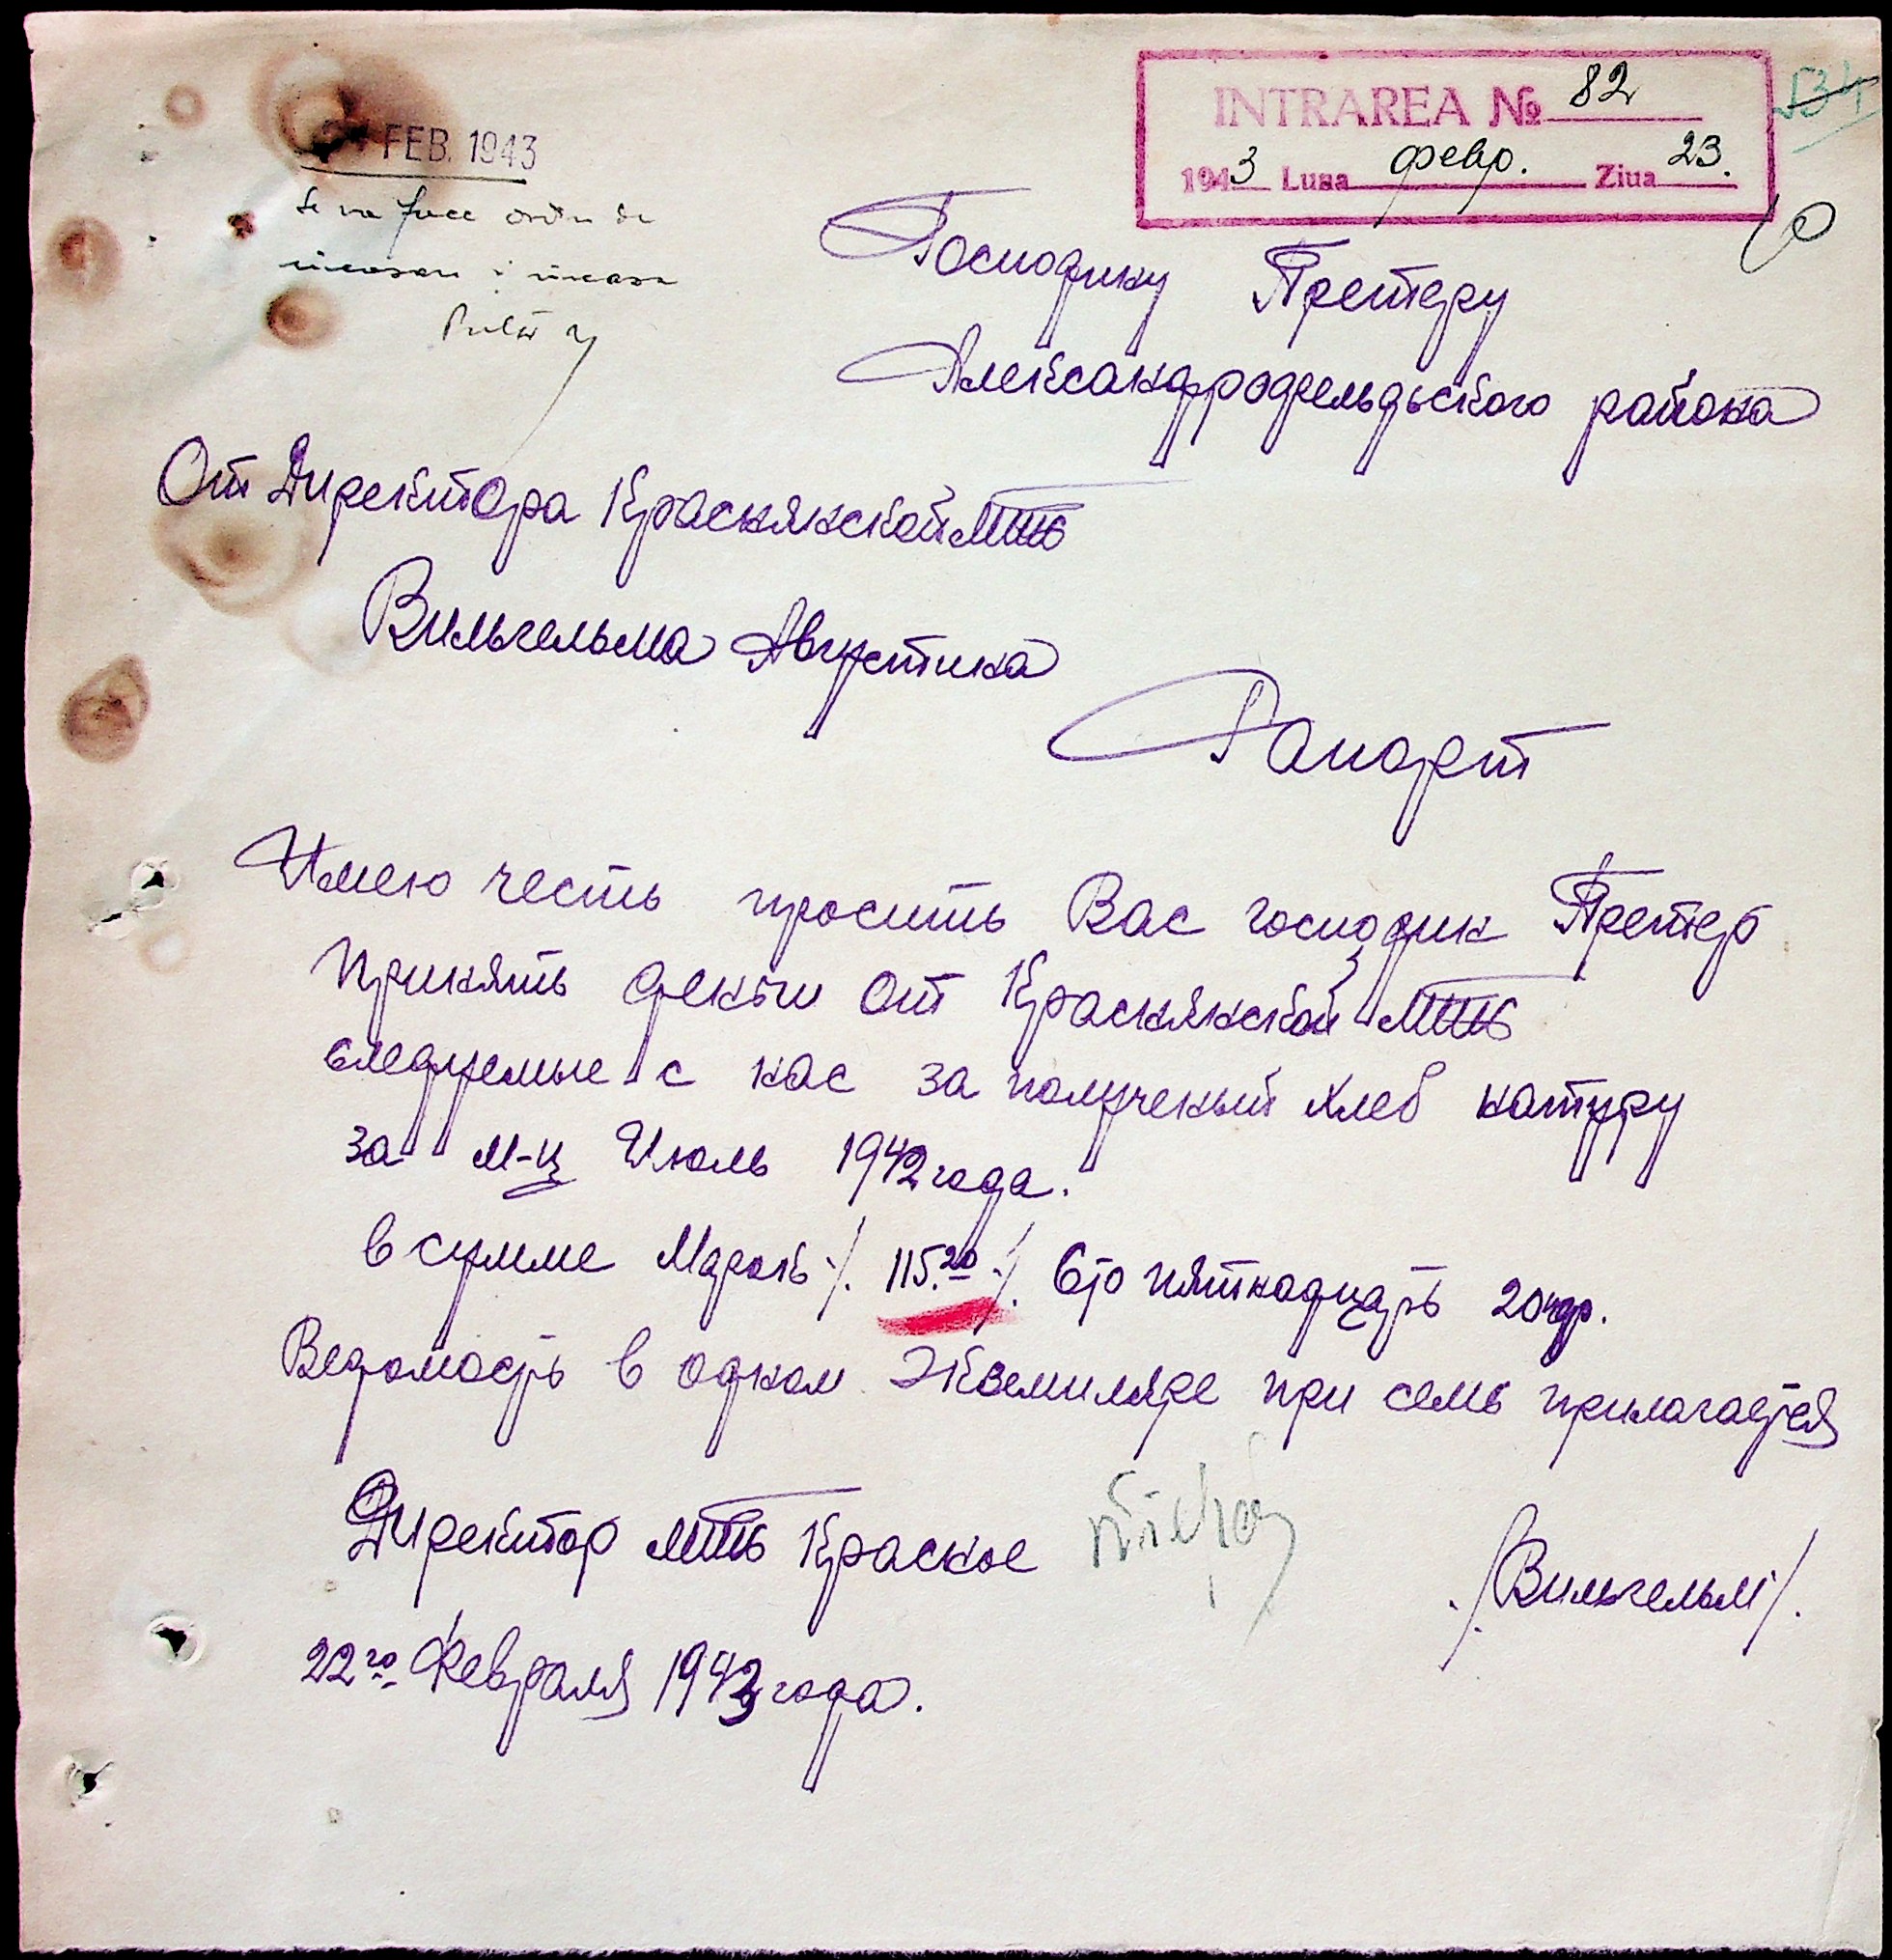 INTRAREA № 82
1943 Luna февр. Ziua 23.
534
FEB. 1943
Se va face ordin de
incasare
Господину Претору
Александрофельдьского района
От Директора Краснянской МТС
Вильгельма Августина
Рапорт
Имею честь просить Вас господин Претор
Принять деньги от Краснянской МТС
следуемые с нас за полученый хлеб натуру
за м-ц Июль 1942 года.
в сумме Марок ·/. 115.20 ·/. Сто пятнадцать 20 пф.
Ведомость в одном Экземпляре при семь прилагается
Директор МТС Красное
./Вильгельм/.
22го Февраля 1943 года.